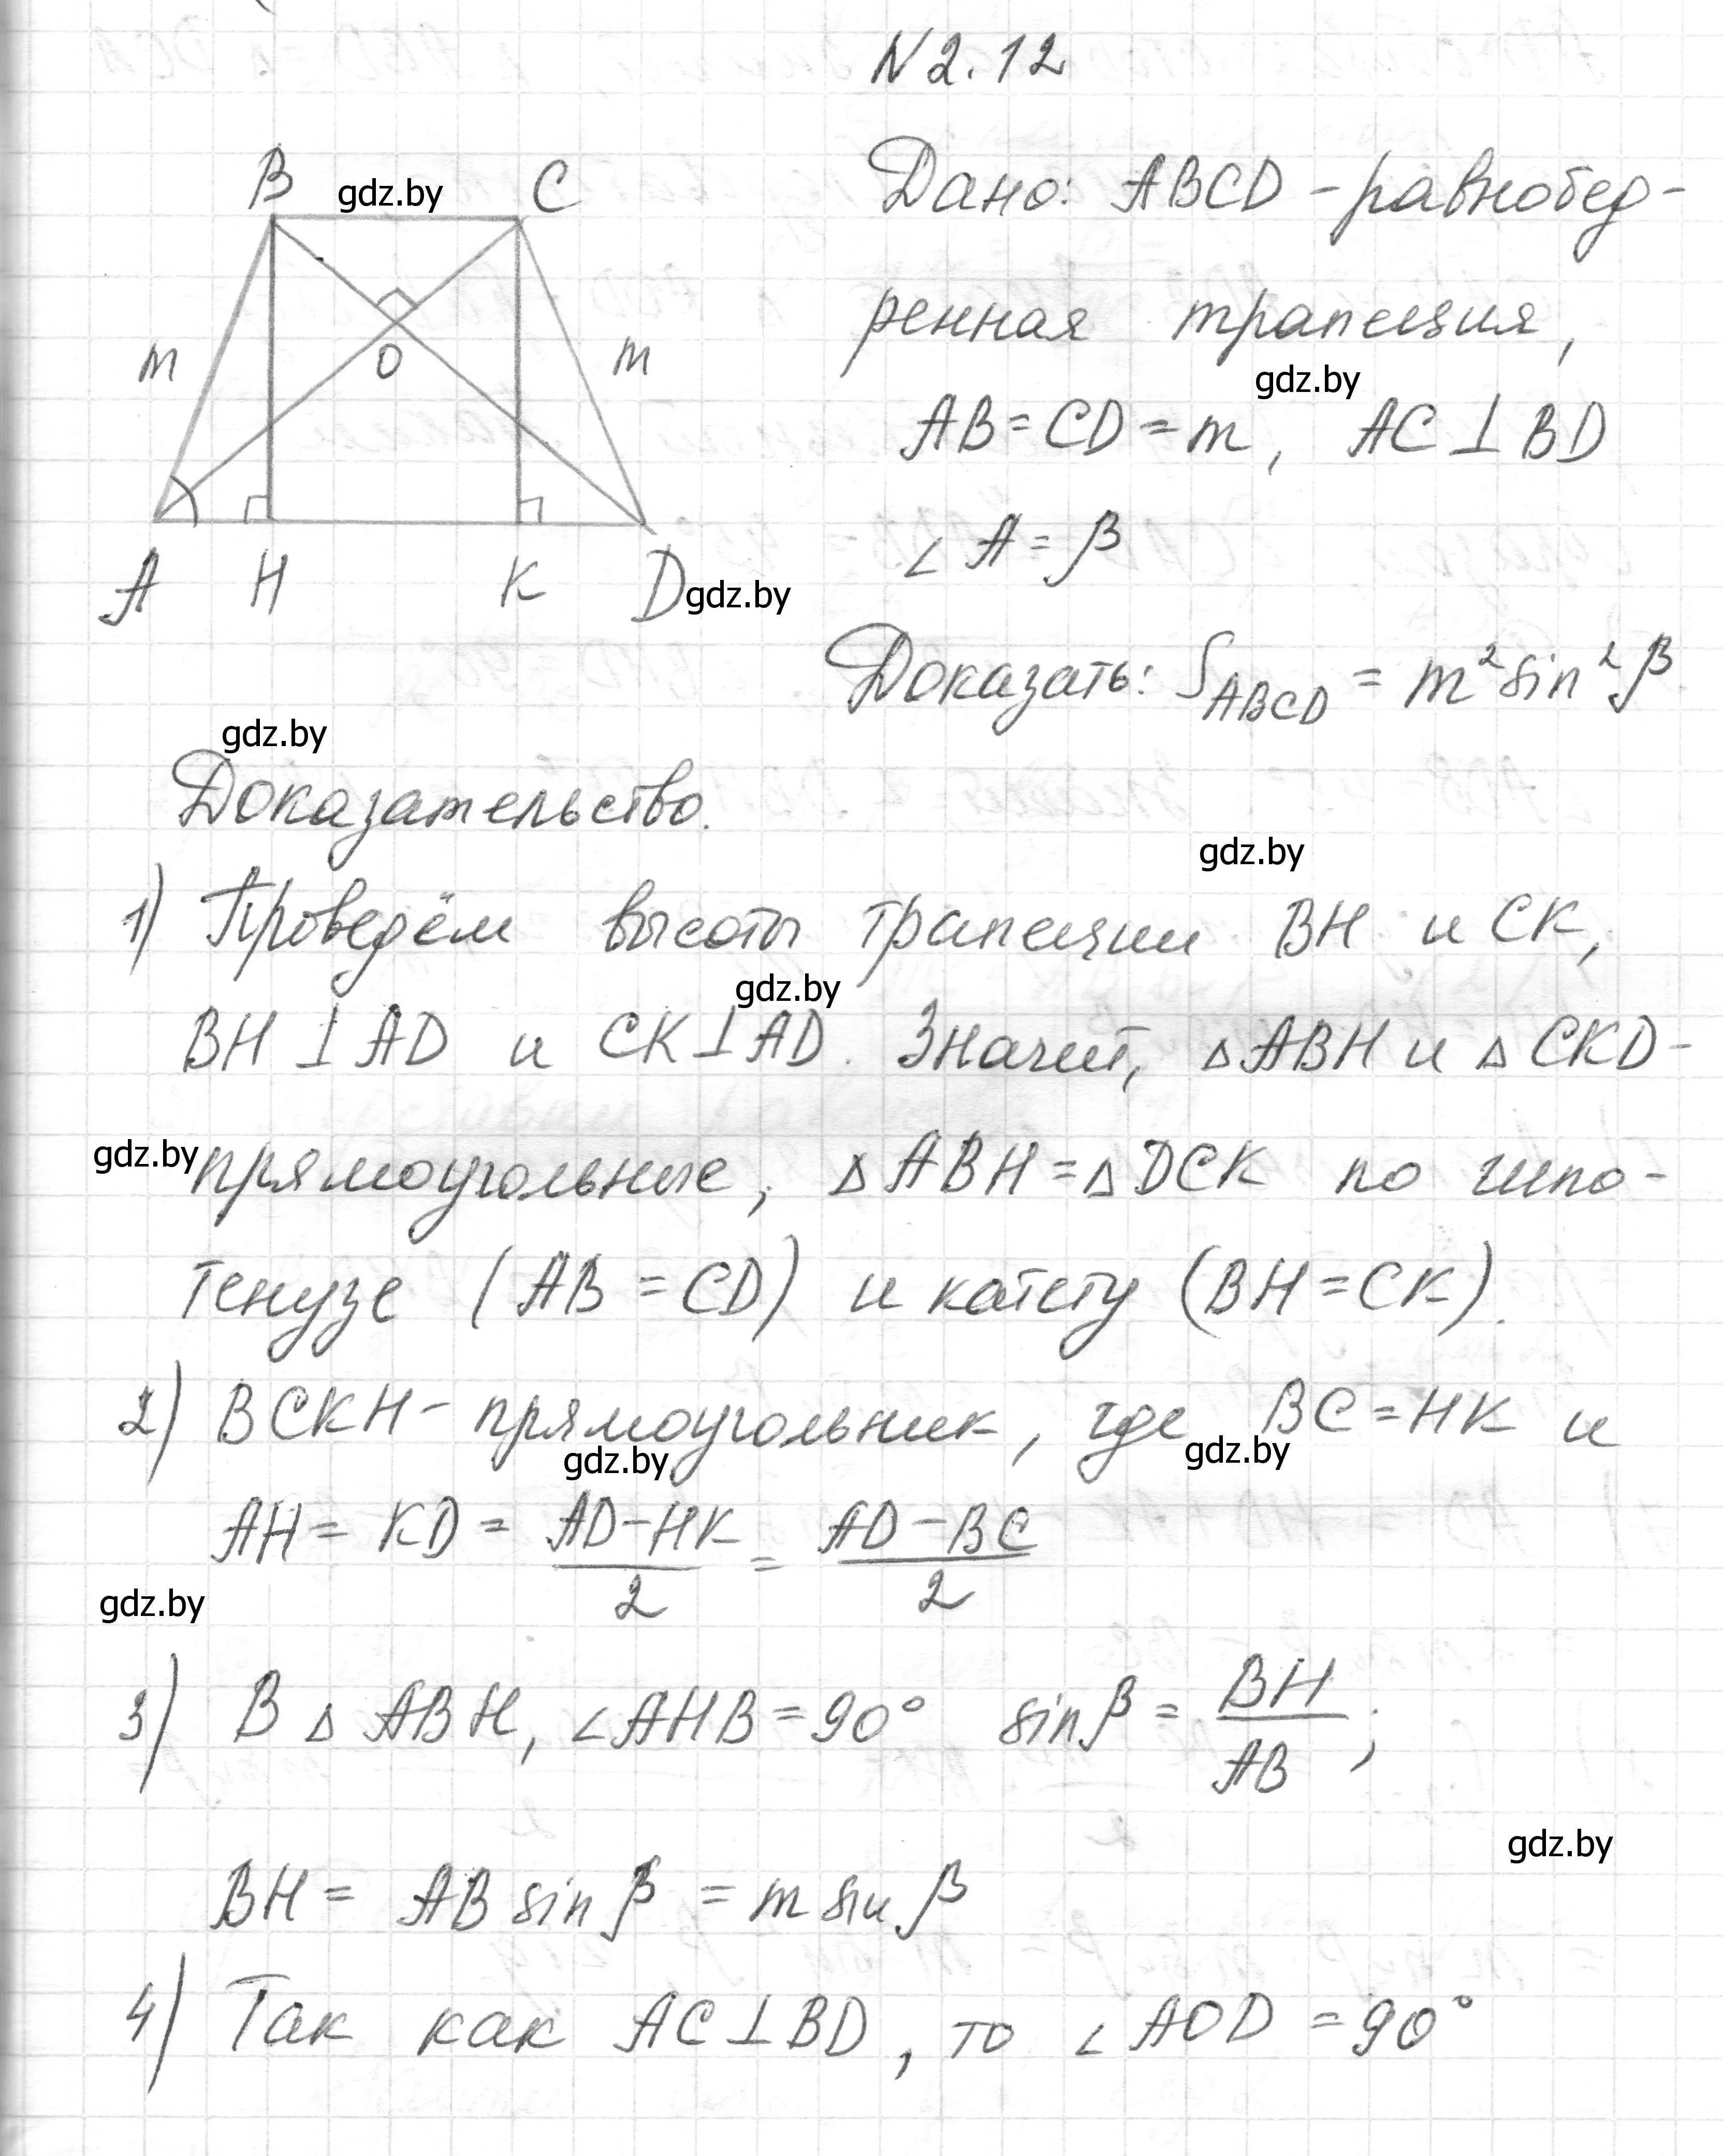 N 2.12
B gdz.by C
Дано: ABCD - равнобед-
ренная трапеция,
gdz.by
m O m
AB = CD = m, AC ⊥ BD
∠A = β
A H K D gdz.by
Доказать: S_ABCD = m² sin² β
gdz.by
Доказательство.
gdz.by
1) Проведём высоты трапеции BH и CK,
gdz.by
BH ⊥ AD и CK ⊥ AD. Значит, △ABH и △CKD -
gdz.by прямоугольные, △ABH = △DCK по гипо-
тенузе (AB = CD) и катету (BH = CK).
2) BCKH - прямоугольник, где BC = HK и
gdz.by gdz.by
AH = KD = (AD - HK)/2 = (AD - BC)/2
gdz.by
3) В △ABH, ∠AHB = 90° sin β = BH/AB;
gdz.by
BH = AB sin β = m sin β
4) Так как AC ⊥ BD, то ∠AOD = 90°